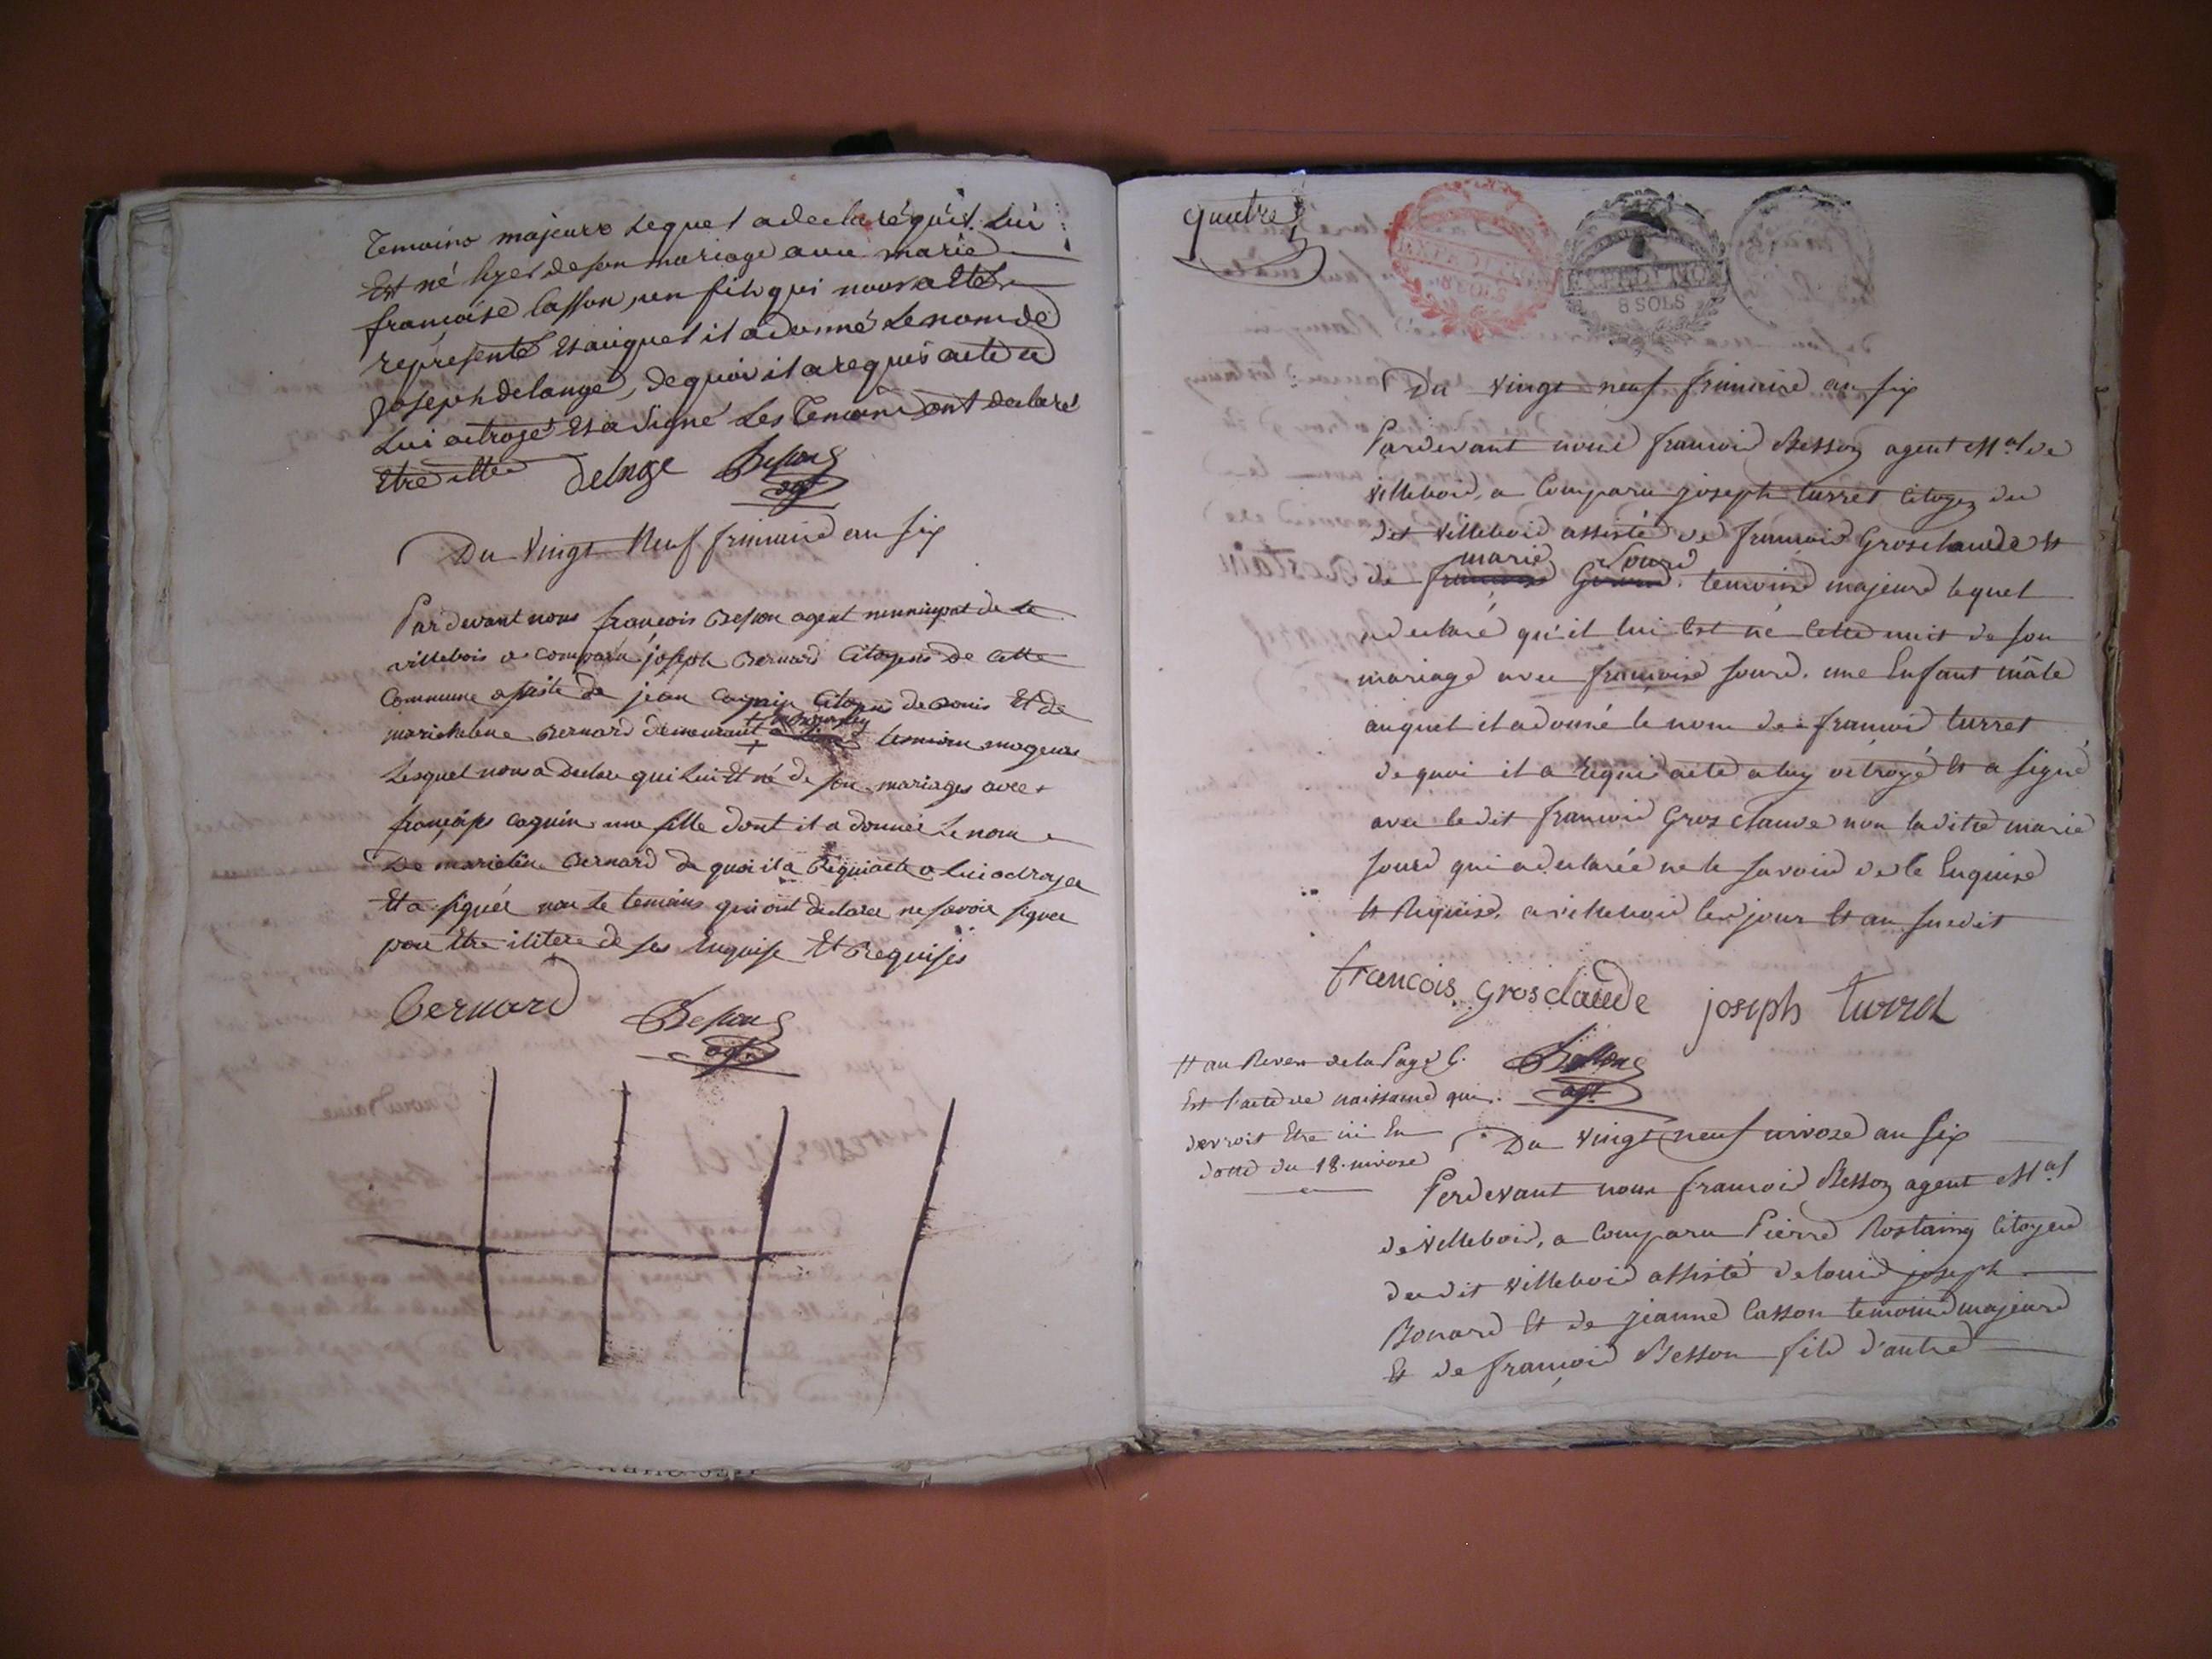 Temoins majeurs lequel a declaré qu'il lui
Est né hyer de son mariage avec marie
françoise Casson, un fils qui nous a Eté
représenté Et auquel il a donné Le nom de
joseph delange, de quoi il a requis acte a
Lui octroyé Et a Signé Les Temoins ont declaré
Etre
delange Besson
agt
Du Vingt Neuf frimaire an six
Par devant nous françois Besson agent municipal de
villebois a comparu joseph Bernard Citoyens de cette
Commune assisté de jean Coquin Citoyen de Et de
Bernard demeurant temoins mageurs
Lesquel nous a Declare qui Lui Et né de son mariages avec
françoise coquin une fille dont il a donnée Le nom
De Bernard de quoi il a Requi acte a Lui octroyer
Et a signée non Le temoins qui ont declarer ne savoir signer
pour Etre ilitere de Ses Enquise Et Requises
Bernard Besson
agt
quatre
EXPEDITION
8 SOLS
EXPEDITION
8 SOLS
Du vingt neuf frimaire an six
Pardevant nous francois Besson agent Mal de
villebois, a Comparu joseph turret Citoyen du
dit villebois assisté de francois Grosclaude Et
marie Sourd
de temoins majeurs lequel
a declaré qu'il lui Est né Cette nuit de son
mariage avec françoise sourd. une Enfant mâle
auquel il a donné le nom de francois turret
de quoi il a requi acte a luy octroyé Et a signé
avec le dit francois Gros claude non la dite marie
sourd qui a declarée ne le savoir de ce Enquise
Et Requise, a villebois les jour Et an susdit
francois grosclaude joseph turret
Et au Revers de la Page 6. Besson
Est l'acte de naissance qui agt
devroit Etre ici En
datte du 18. nivose
Du vingt neuf nivose an six
Perdevant nous francois Besson agent Mal
de villebois, a Comparu Pierre Rostaing Citoyen
du dit villebois assisté de louis joseph
Bonard Et de jeanne Casson temoins majeurs
Et de françois Besson fils d'autre